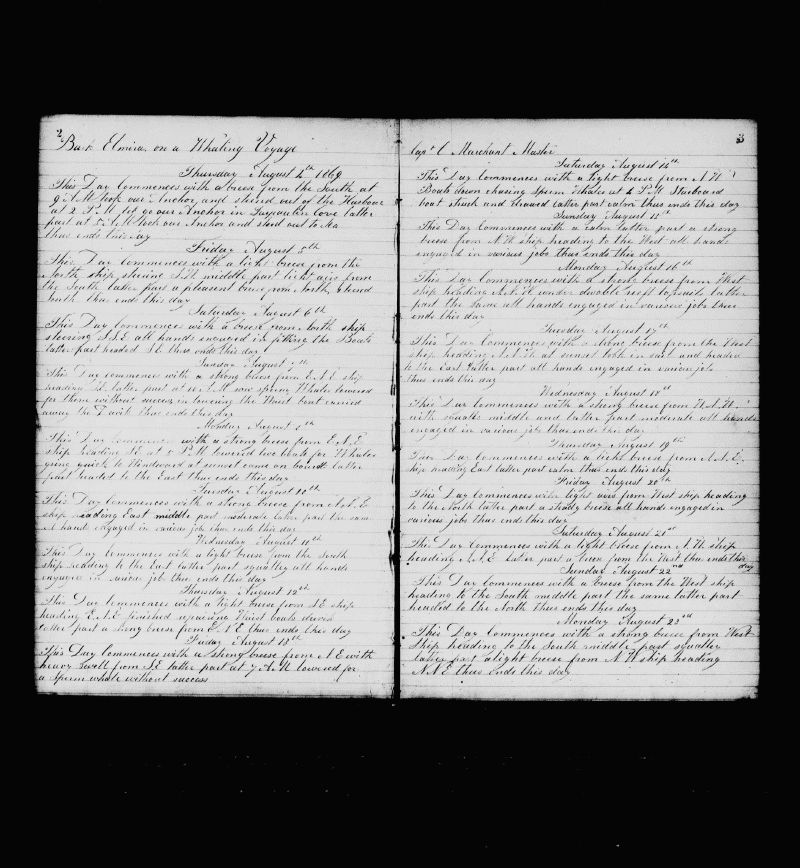 2
Bark Elmira on a Whaling Voyage
Thursday August 4th 1869
This Day Commences with a breese from the South at
9 A.M. took our Anchor and steired out of the Harbour
at 2 P.M. let go our Anchor in Cove latter
part at 5 A.M took our Anchor and stood out to Sea
thus ends this day
Friday August 5th
This Day Commences with a light breese from the
North ship steering middle part light airs from
the South latter part a pleasent breese from North steired
South thus ends this day
Saturday August 6th
This Day Commences with a breese from North ship
steering S.S.E. all hands engaged in fitting the Boats
latter part headed thus ends this day
Sunday August 7th
This Day commences with a strong breese from E.N.E ship
heading latter part at A.M saw sperm Whales lowered
for them without success in lowering the Waist boat carried
away the Davit thus ends this day
Monday August
This Day Commences with a strong breese from E.N.E
ship heading at 5 P.M lowered boats for Whales
going quick to Windward at sunset came on board latter
part headed to the East thus ends this day
Tuesday August 10th
This Day Commences with a strong breese from
ship heading East middle part moderate latter part the same
all hands engaged in various jobs thus ends this day
Wednesday August 11th
This Day Commences with a light breese from the South
ship heading to the East latter part squally all hands
engaged in various job thus ends this day
Thursday August 12th
This Day Commences with a light breese from S.E ship
heading E.N.E finished repairing Waist boats
latter part a strong breese from thus ends this day
Friday August 13th
This Day Commences with a strong breese from N.E with
heavy swell from S.E latter part at 7 A.M lowered for
a sperm whale without success
3
Capt C Marchant Master
Saturday August 14th
This Day Commences with a light breese from N.W
Boats down chasing sperm Whales at 4 P.M Starboard
boat struck and latter part calm thus ends this day
Sunday August 15th
This Day Commences with a calm latter part a strong
breese from ship heading to the West all hands
engaged in various jobs thus ends this day
Monday August 16th
This Day Commences with a strong breese from West
ship heading under double reeft topsails latter
part the same all hands engaged in various jobs thus
ends this day
Tuesday August 17th
This Day Commences with a strong breese from the West
ship heading at sunset took in sail and headed
to the East latter part all hands engaged in various jobs
thus ends this day
Wednesday August 18th
This Day Commences with a strong breese from W.N.W
with squalls middle and latter part moderate all hands
engaged in various jobs thus ends this day
Thursday August 19th
This Day Commences with a light breese from
ship heading East latter part calm thus ends this day
Friday August 20th
This Day Commences with light airs from West ship heading
to the North latter part a steady breese all hands engaged in
various jobs thus ends this day
Saturday August 21st
This Day Commences with a light breese from N.W. ship
heading latter part a breese from the West thus ends this
day
Sunday August 22nd
This Day Commences with a breese from the West ship
heading to the South middle part the same latter part
headed to the North thus ends this day
Monday August 23rd
This Day Commences with a strong breese from West
ship heading to the South middle part squally
latter part a light breese from N.W ship heading
N.N.E thus ends this day